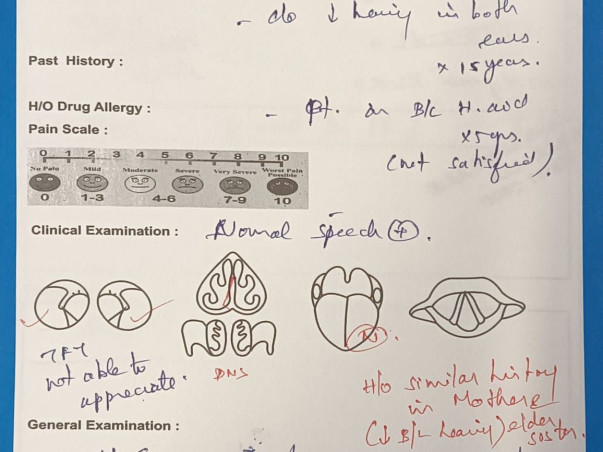 - c/o ↓ hearing in both
ears.
Past History :
x 15 years.
H/O Drug Allergy :
- Pt. on B/L H. aid
x 5 yrs.
(not satisfied)
Pain Scale :
0 1 2 3 4 5 6 7 8 9 10
No Pain Mild Moderate Severe Very Severe Worst Pain Possible
0 1-3 4-6 7-9 10
Clinical Examination :
Normal speech (+).
TFT
not able to
appreciate.
DNS
H/o similar history
in Mother &
(↓ B/L hearing) elder
sister.
General Examination :